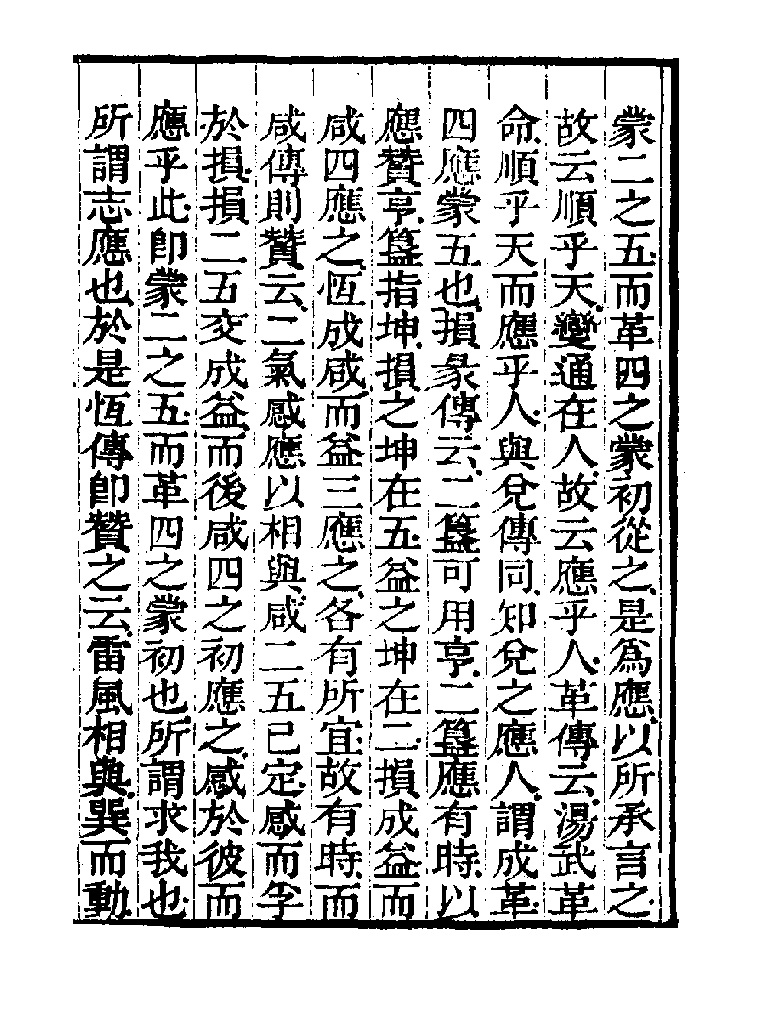 蒙二之五而革四之蒙初從之是爲應以所承言之
故云順乎天變通在人故云應乎人革傳云湯武革
命順乎天而應乎人與兌傳同知兌之應人謂成革
四應蒙五也損彖傳云二簋可用亨二簋應有時以
應贊亨簋指坤損之坤在五益之坤在二損成益而
咸四應之恆成咸而益三應之各有所宜故有時而
咸傳則贊云二氣感應以相與咸二五已定感而孚
於損損二五交成益而後咸四之初應之感於彼而
應乎此卽蒙二之五而革四之蒙初也所謂求我也
所謂志應也於是恆傳卽贊之云雷風相與巽而動